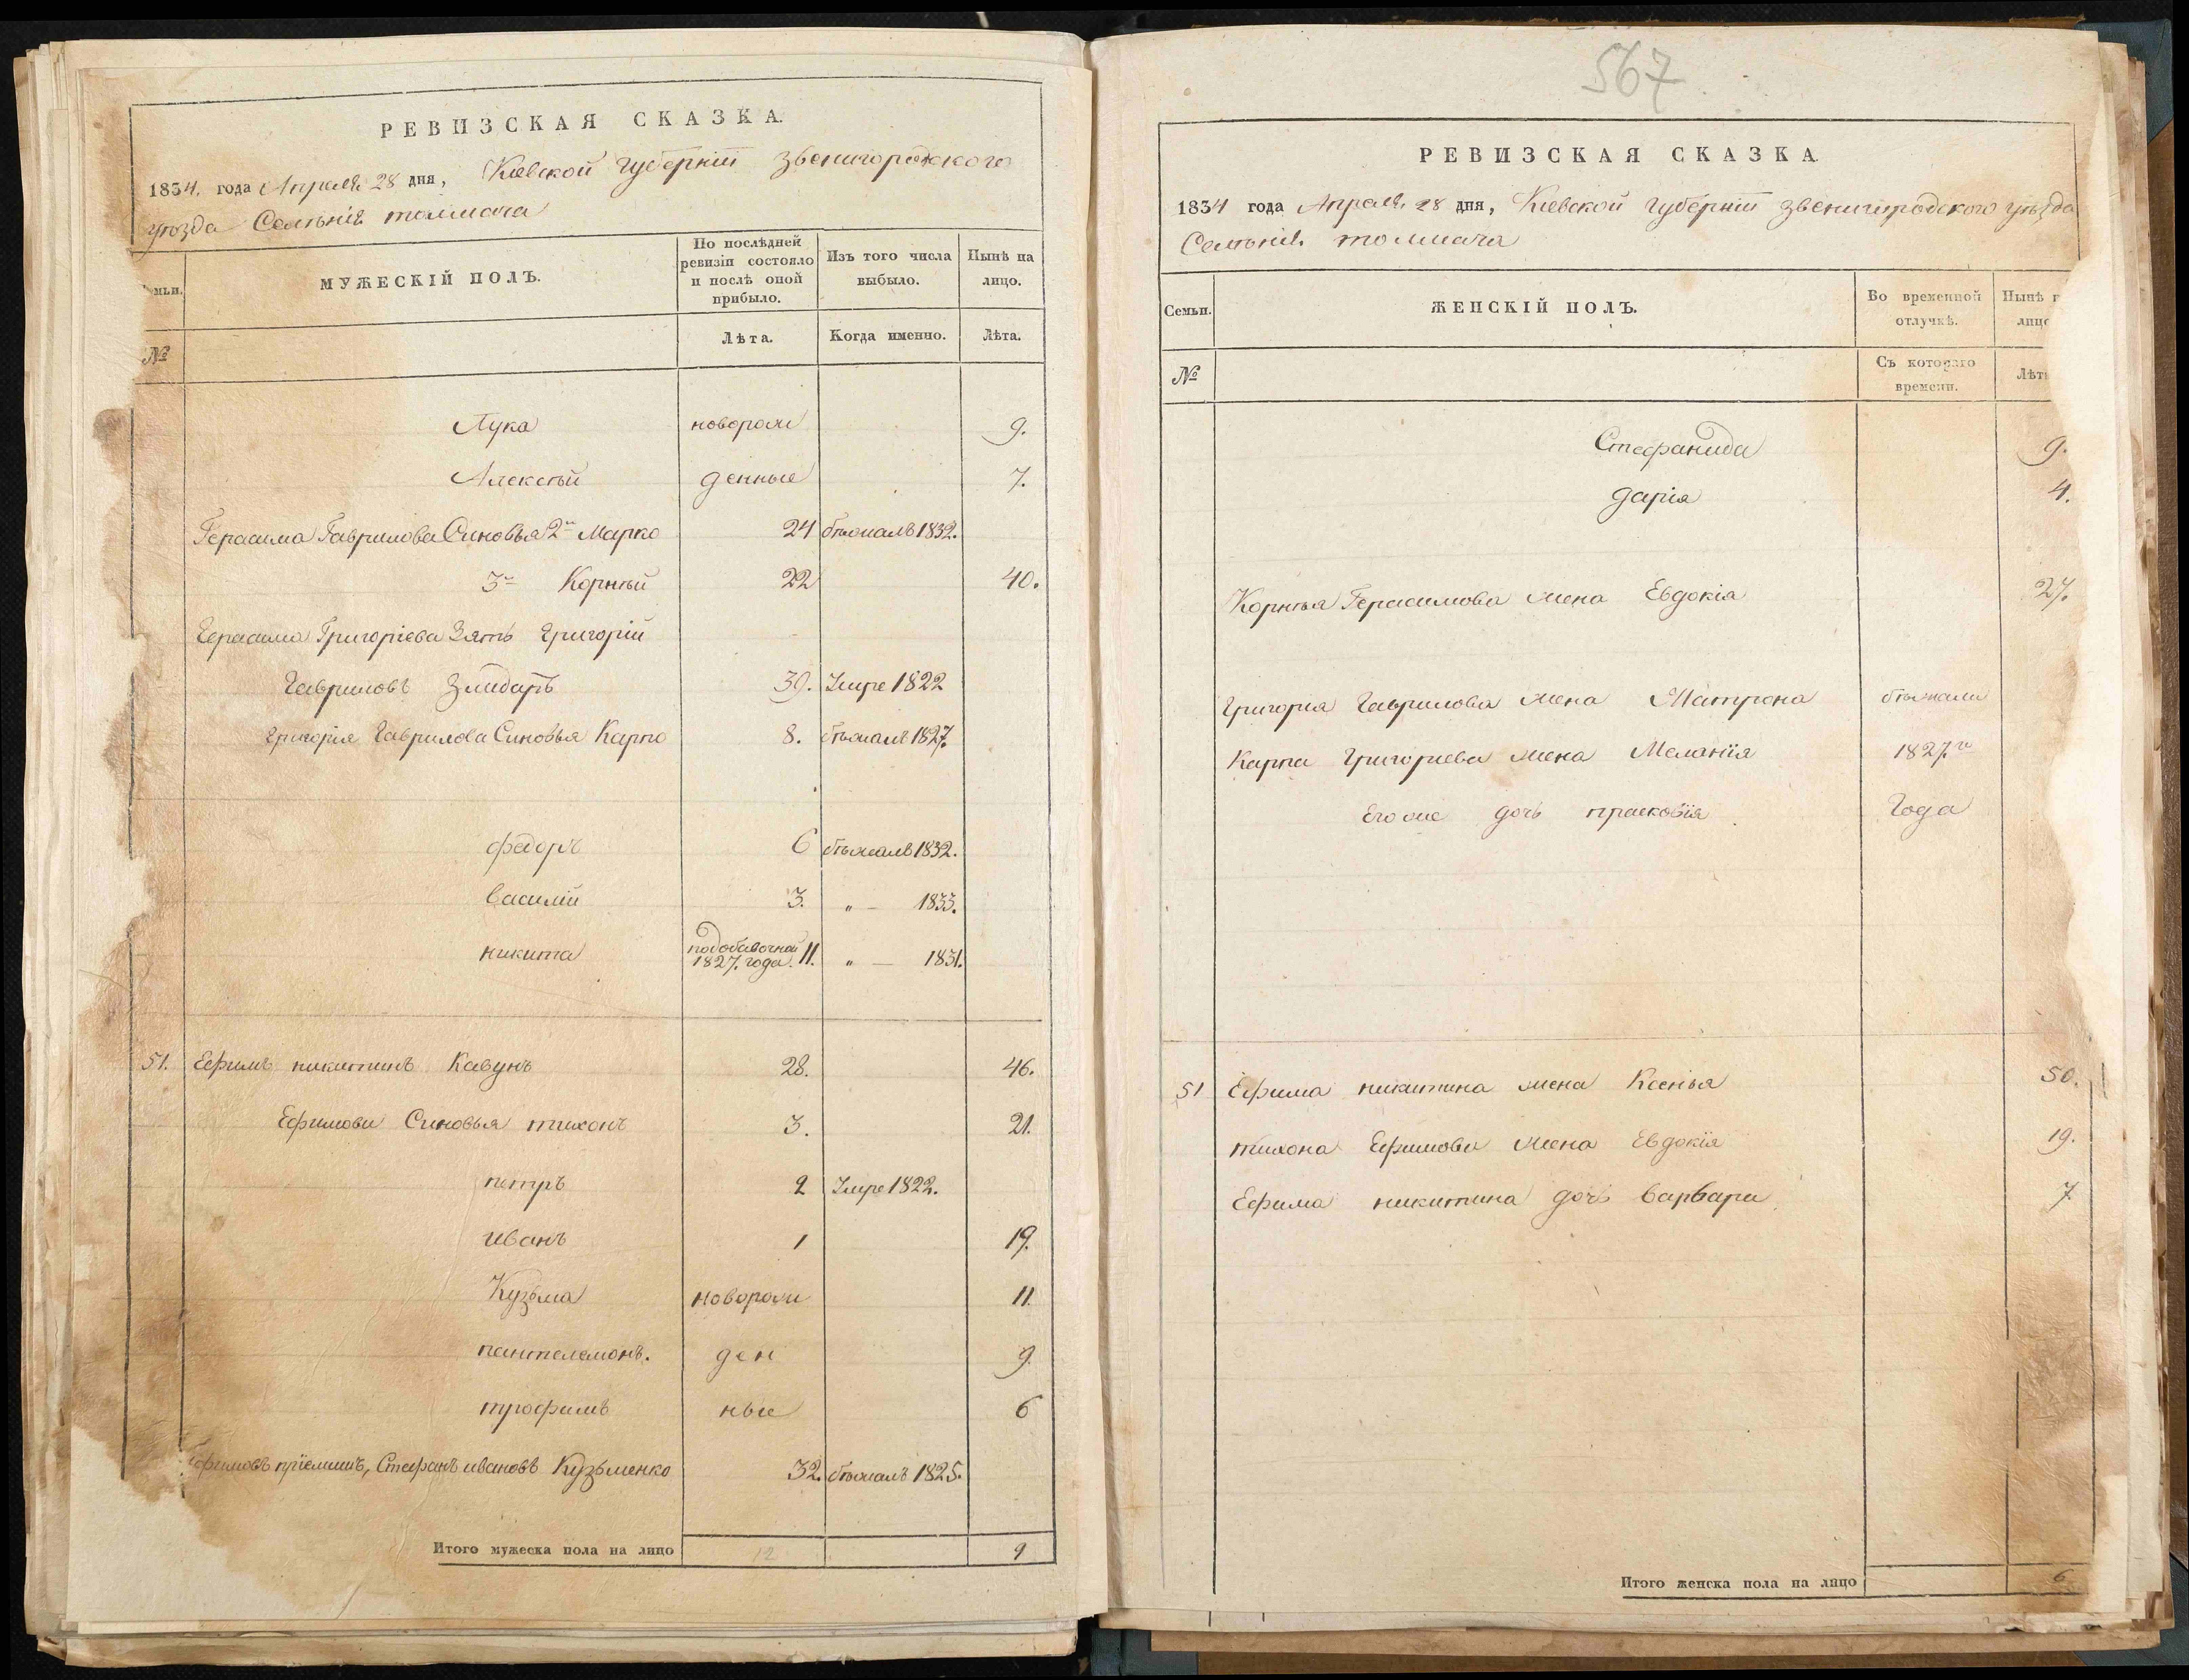 РЕВИЗСКАЯ СКАЗКА.
1834. года Апреля 28 дня, Киевской губернiи Звенигородского
уѣзда Селѣнiя толмача
Семьи.
МУЖЕСКІЙ ПОЛЪ.
По послѣдней ревизіи состояло и послѣ оной прибыло.
Изъ того числа выбыло.
Нынѣ на лицо.
№
Лѣта.
Когда именно.
Лѣта.
Лука новорож 9.
Алексѣй денные 7.
Герасима Гаврилова Синовья 2й Марко 24 бѣжалъ 1832.
3й Корнѣй 22 40.
Герасима Григорiева Зять Григорiй
Гавриловъ 39. Умре 1822
Григорiя Гаврилова Синовья Карпо 8. бѣжалъ 1827.
федоръ 6 бѣжалъ 1832.
василiй 3. " — 1833.
никита подобавочной 1827. года. 11. " — 1831.
51. Ефимъ никитинъ Кавунъ 28. 46.
Ефимови Синовья тихонъ 3. 21.
петръ 2 Умре 1822.
иванъ 1 19.
Кузьма новорож 11.
пантелемонъ. ден 9
трофимъ ные 6
Ефимовъ прiемышъ, Стефанъ ивановъ Кузьменко 32. бѣжалъ 1825.
Итого мужеска пола на лицо 12 9
567
РЕВИЗСКАЯ СКАЗКА.
1834 года Апреля 28 дня, Киевской губернiи звенигородского уѣзда
Селѣнiя толмача
Семьи.
ЖЕНСКІЙ ПОЛЪ.
Во временной отлучкѣ.
Нынѣ
лицо
№
Съ котораго времени.
Лѣта
Стефанида 9.
дарiя 4.
Корнѣя Герасимова жена Евдокiя 27.
Григория Гаврилова жена Матрона бѣжали
Карпа Григориева жена Меланiя 1827.го
Его же дочь прасковiя Года
51 Ефима никитина жена Ксенья 50.
тихона Ефимова жена Евдокiя 19.
Ефима никитина дочь варвара 7
Итого женска пола на лицо 6